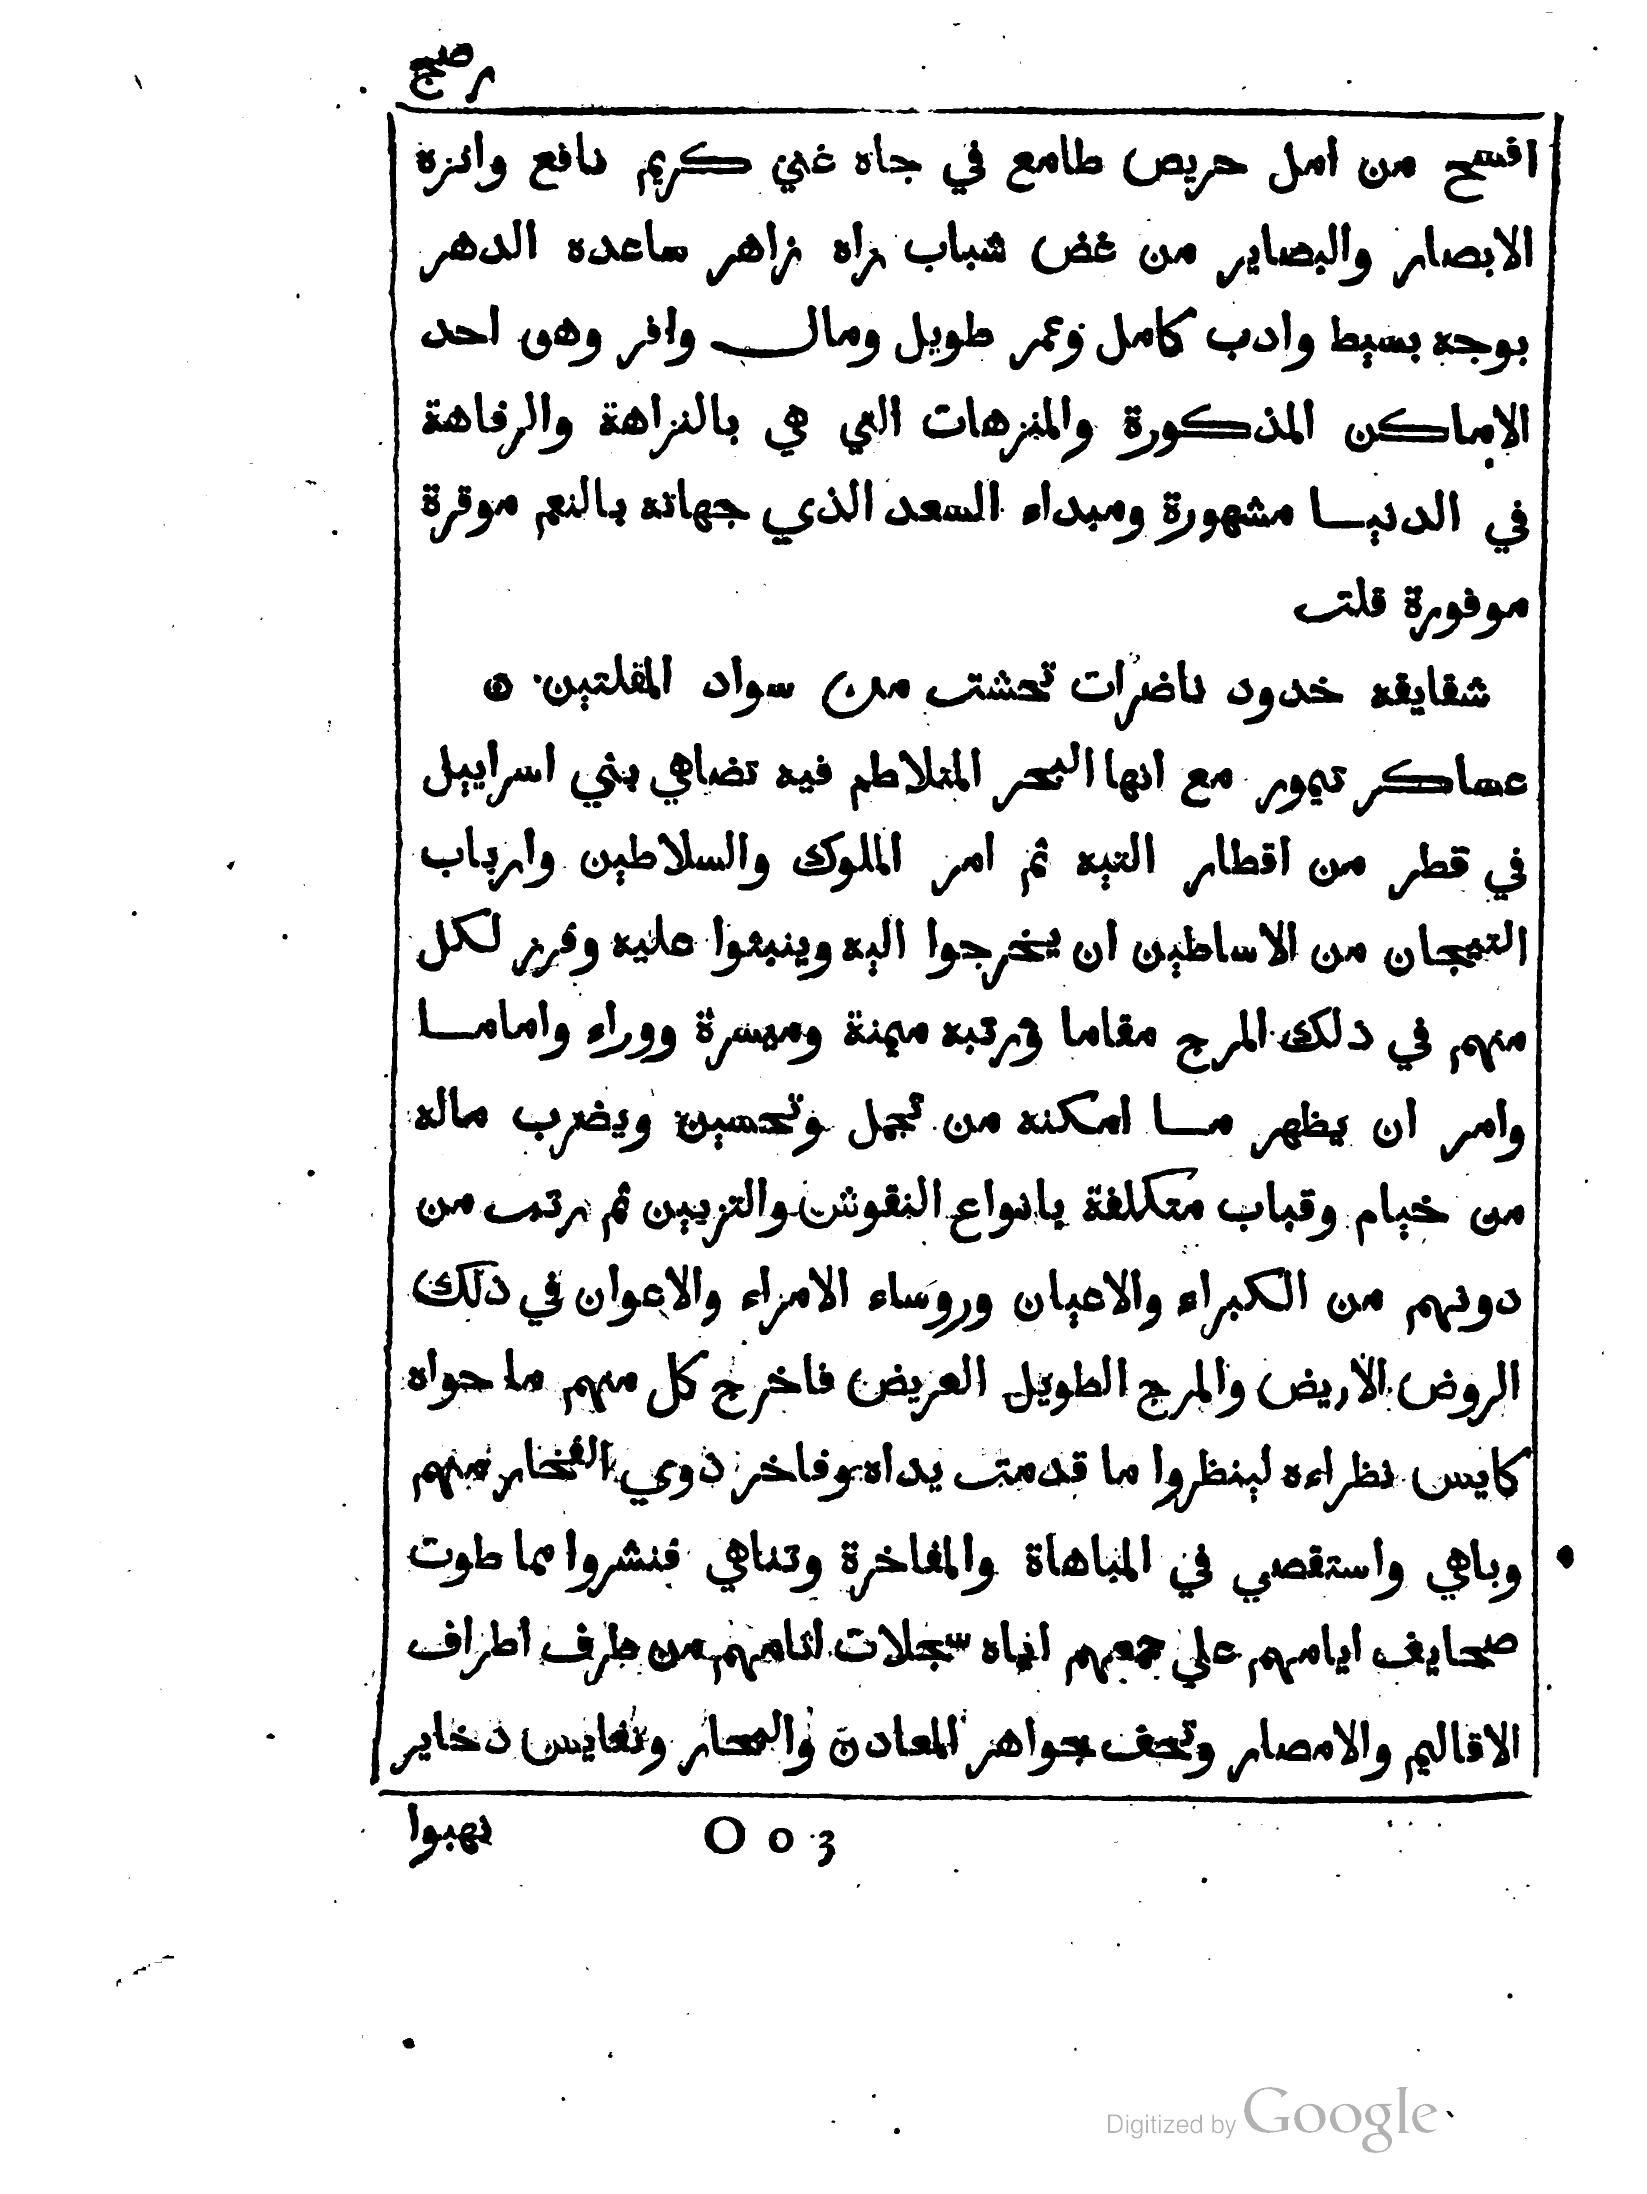 رصج
افسح من امل حريص طامع في جاه غني كريم نافع وانزه
الابصار والبصاير من غض شباب زاه زاهر ساعده الدهر
بوجه بسيط وادب كامل وعمر طويل ومال وافر وهو احد
الاماكن المذكورة والمنزهات التي هي بالنزاهة والرفاهة
في الدنيا مشهورة ومبداء السعد الذي جهاته بالنعم موقرة
موفورة قلت
شقايقه خدود ناضرات تحشت من سواد المقلتين ٥
عساكر تيمور مع انها البحر المتلاطم فيه تضاهي بني اسراييل
في قطر من اقطار التيه ثم امر الملوك والسلاطين وارباب
التيجان من الاساطين ان يخرجوا اليه وينبثوا عليه وفرز لكل
منهم في ذلك المرج مقاما ورتبه ميمنة وميسرة ووراء واماما
وامر ان يظهر ما امكنه من تجمل وتحسين ويضرب ماله
من خيام وقباب متكلفة بانواع النقوش والتزيين ثم رتب من
دونهم من الكبراء والاعيان وروساء الامراء والاعوان في ذلك
الروض الاريض والمرج الطويل العريض فاخرج كل منهم ما حواه
كايس نظراءه لينظروا ما قدمت يداه وفاخر ذوي الفخار منهم
وباهي واستقصي في المباهاة والمفاخرة وتناهي فنشروا مما طوت
صحايف ايامهم علي جمعهم اياه سجلات اثامهم من طرف اطراف
الاقاليم والامصار وتحف جواهر المعادن والبحار ونفايس ذخاير
نهبوا
O o 3
Digitized by Google